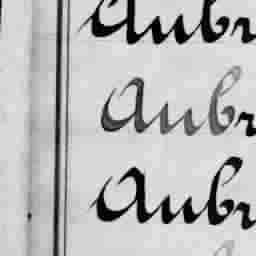 Aubr
Aubr
Aubr